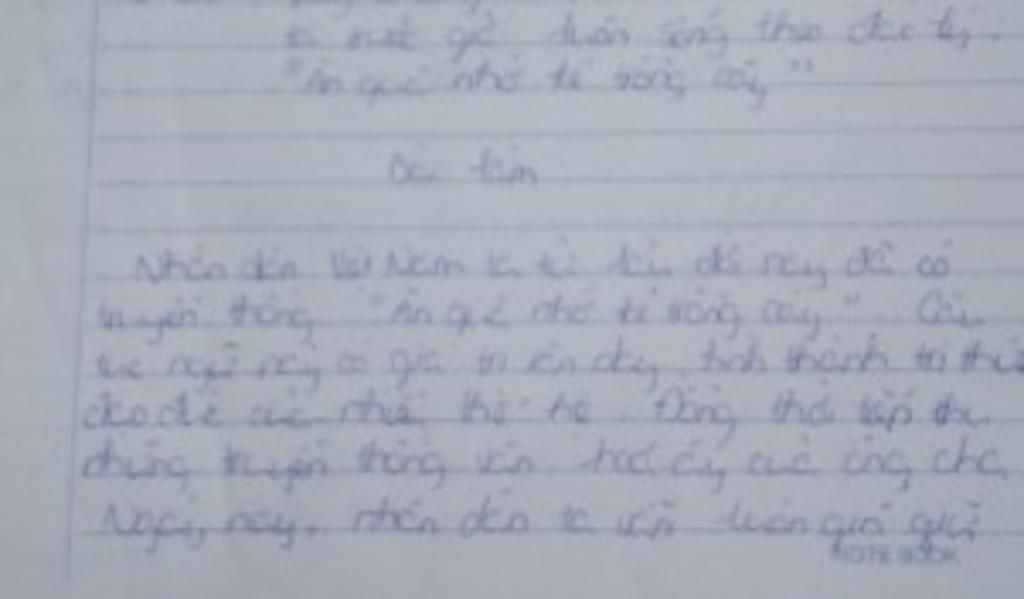 ta trước giờ luôn sống theo đạo lý.
"Ăn quả nhớ kẻ trồng cây"
Bài làm
Nhân dân Việt Nam ta từ lâu đời nay đã có
truyền thống "Ăn quả nhớ kẻ trồng cây" Câu
tục ngữ này có giá trị dạy, hình thành tri thức
đạo đức của nhiều thế hệ. Đồng thời tiếp thu
những truyền thống văn hoá ấy của ông cha
Ngày nay, nhân dân ta vẫn luôn gìn giữ
NOTE BOOK